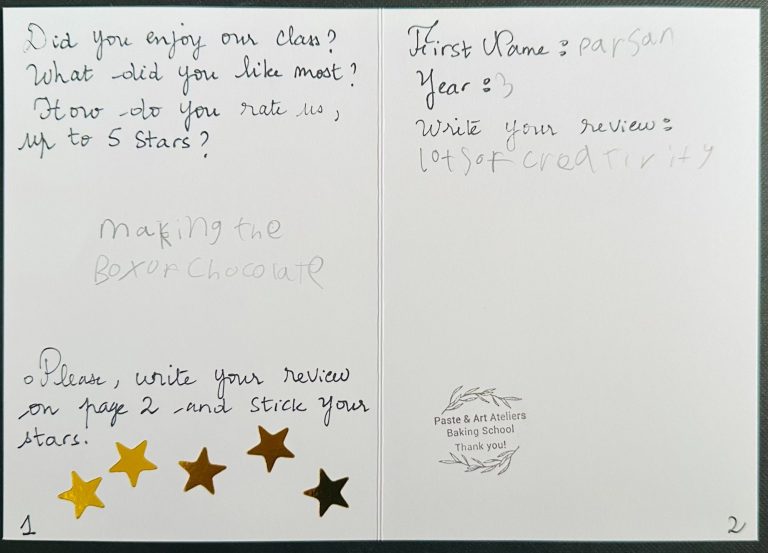 Did you enjoy our class?
What did you like most?
How do you rate us,
up to 5 stars?
making the
Box of chocolate
o Please, write your review
on page 2 and stick your
stars.
1
First Name: parsan
Year: 3
Write your review:
lots of creativity
Paste & Art Ateliers
Baking School
Thank you!
2